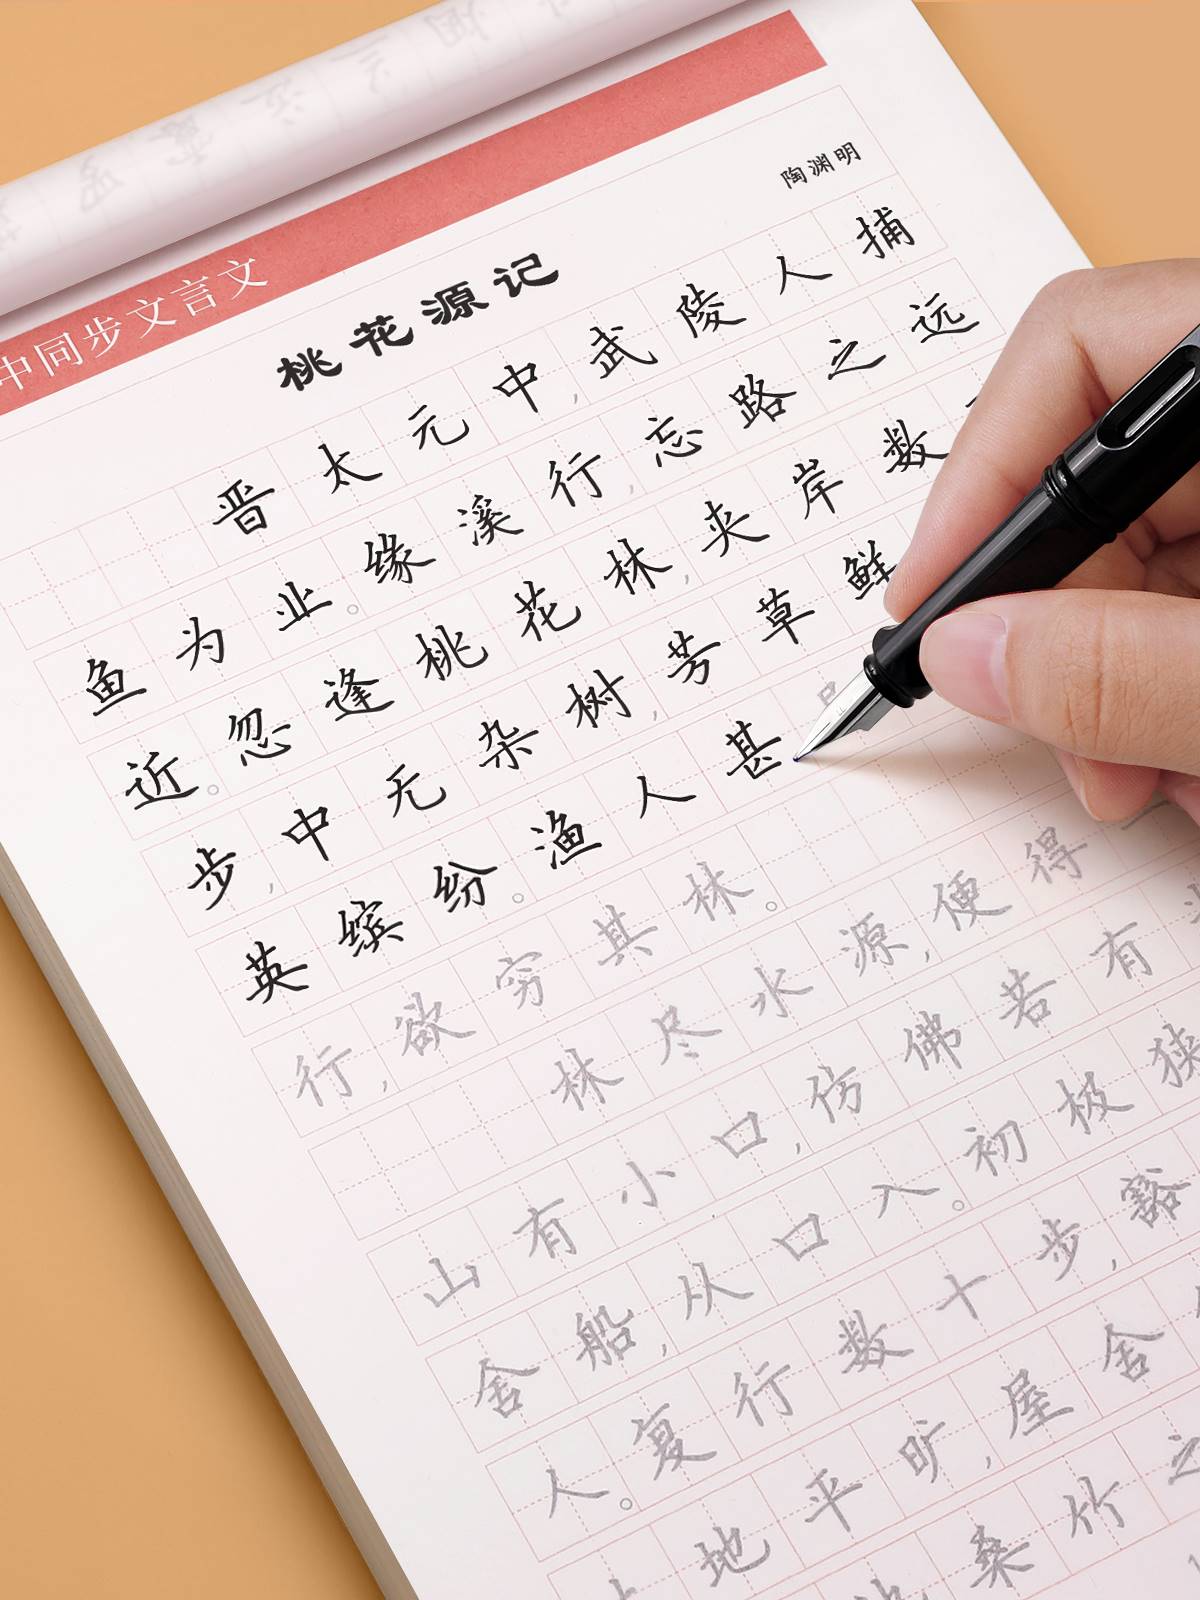 中同步文言文
桃花源记
陶渊明
晋太元中,武陵人捕
鱼为业。缘溪行,忘路之远
近。忽逢桃花林,夹岸数
步,中无杂树,芳草鲜
英缤纷。渔人甚
行,欲穷其林。
林尽水源,便得
山有小口,仿佛若有
舍船,从口入。初极狭
人。复行数十步,豁
地平旷,屋舍
桑竹之